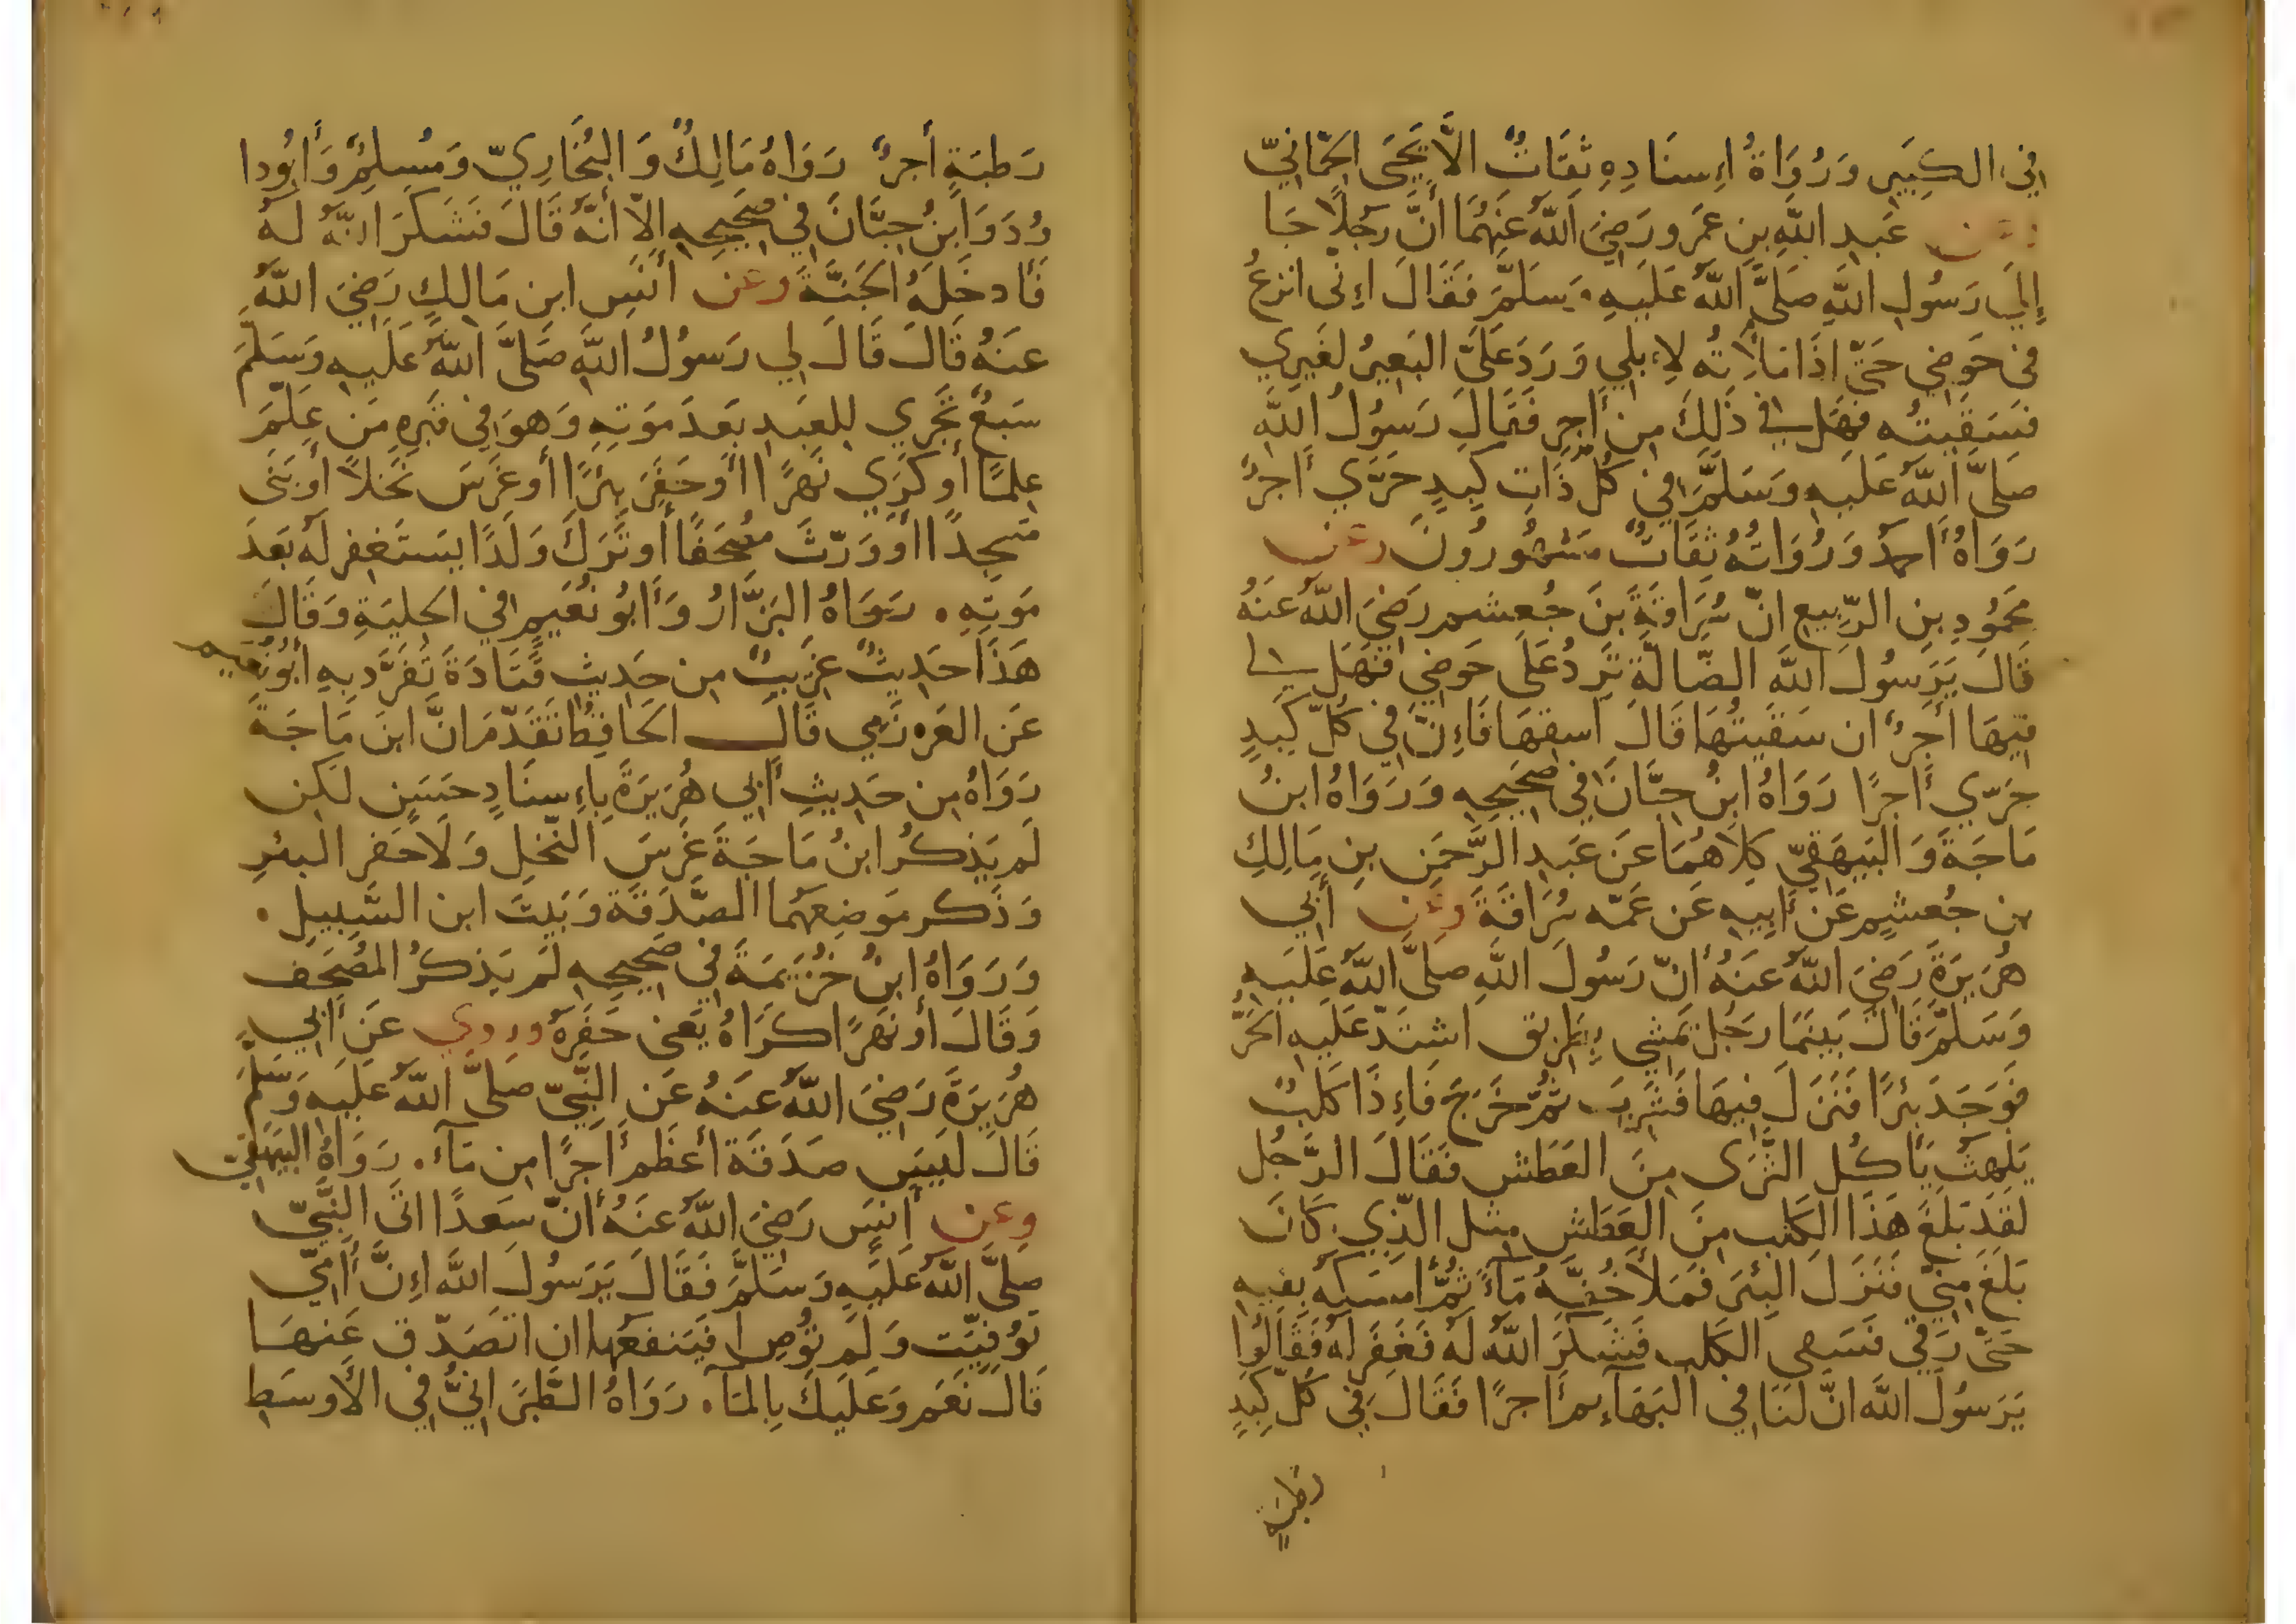 فِي الكَبِيرِ وَرُوَاةُ اِسنَادِهِ ثِقَاتٌ الاَّ يَحيَى الحِمَّانِيّ
وعن عَبدِ اللَّهِ بنِ عَمرو رَضِيَ اللَّهُ عَنهُمَا أَنَّ رَجُلًا جَا
إِلَي رَسُولِ اللَّهِ صَلَّى اللَّهُ عَلَيهِ وَسَلَّمَ فَقَالَ اِنّى انزعُ
فى حَوضِي حَتّى اذَا مَلَأتُه لاِبِلِي وَرَدَ عَلَىَّ البَعِيرُ لغَيرِي
فَسَقَيتُه فهَل فى ذَلِكَ مِن أَجرٍ فَقَالَ رَسُولُ اللَّهِ
صَلَّى اللَّهُ عَلَيهِ وَسَلَّمَ فِي كُلّ ذَاتِ كَبِدٍ حَرَّي أَجرٌ
رَوَاهُ أَحمَدُ وَرُوَاتُهُ ثِقَاتٌ مَشهُورُونَ وعن
مَحمُودِ بنِ الرَّبِيعِ انّ سُرَاقَةَ بنَ جُعشمٍ رَضِيَ اللَّهُ عَنهُ
قَالَ يَرَسُولَ اللَّه الضَّالَّة تَرِدُ عَلَى حَوضِي فَهَل لي
فِيهَا أَجرٌ ان سَقَيتُهَا قَالَ اسقِهَا فَاِنّ فِي كُلّ كَبِدٍ
حَرّي أَجرًا رَوَاهُ ابنُ حِبَّانَ فِي صَحِيحِهِ وَرَوَاهُ ابنُ
مَاجَةَ وَالبَيهَقِيّ كِلَاهُمَا عَن عَبدِ الرَّحمَنِ بنِ مَالِكِ
بن جُعشُمٍ عَن أَبِيهِ عَن عَمّه سُرَاقَةَ وعن أَبِي
هُرَيرَةَ رَضِيَ اللَّهُ عَنهُ أَنّ رَسُولَ اللَّهِ صَلَّى اللَّهُ عَلَيهِ
وَسَلَّمَ قَالَ بَينَمَا رَجُل يَمشِي بِطَرِيق اشتَدّ عَلَيهِ الحَرُّ
فَوَجَدَ بئرًا فَنَزَلَ فِيهَا فَشَرِبَ ثُمَّ خَرَجَ فَاِذَا كَلبٌ
يَلهثُ يَأكُل الثَّرَى مِنَ العَطَشِ فَقَالَ الرَّجُل
لَقَد بَلَغَ هَذَا الكَلب مِنَ العَطَشِ مِثل الَّذِي كَانَ
بَلَغَ مِنّي فَنَزَلَ البِئرَ فَمَلَأ خُفَّهُ مَآءً ثُمَّ امسَكهُ بِفيهِ
حَتّى رَقِيَ فَسَقى الكَلب فَشَكَرَ اللَّهُ لَهُ فَغَفَرَ لَهُ فَقَالُوا
يَرَسُولَ اللَّه انّ لَنَا فِي البَهَآئِم أَجرًا فَقَالَ فِي كُلّ كَبِدٍ
رَطبَةٍ
رَطبَةٍ أَجرٌ رَوَاهُ مَالِكٌ وَالبُخَارِيّ وَمُسلِمٌ وَأَبُودا
وُدَ وَابنُ حِبَّانَ فِي صَحِيحِهِ إِلاّ أَنَّهُ قَالَ فَشَكَرَ اللَّهُ لَهُ
فَأَدخَلَهُ الجَنَّةَ وعن أَنَسِ ابن مَالِكٍ رَضِيَ اللَّهُ
عَنهُ قَالَ قَالَ لِي رَسُولُ اللَّهِ صَلَّى اللَّهُ عَلَيهِ وَسَلَّمَ
سَبعٌ تَجَرِي لِلعَبدِ بَعدَ مَوتِهِ وَهوَ فِي قَبرِهِ مَن عَلّمَ
عِلمًا أَو كَرَي نَهرًا أَو حَفَرَ بِئرًا أَو غَرَسَ نَخلًا أَو بَنَى
مَسجِدًا أَو وَرّثَ مُصحَفًا أَو تَرَكَ وَلَدًا يَستَغفِر لَهُ بَعدَ
مَوتِهِ . رَوَاهُ البَزَّارُ وَأَبُو نُعَيمٍ فِي الحِليَةِ وَقَالَ
هَذَا حَدِيثٌ غَرِيبٌ مِن حَدِيثِ قَتَادَةَ تَفَرَّدَ بِهِ أَبُو نُعَيم
عَن العَرزَمِي قَالَ الحَافِظُ تَقَدَّمَ انَّ ابنَ مَاجَةَ
رَوَاهُ مِن حَدِيثِ أَبِي هُرَيرَةَ بِاِسنَادٍ حَسَنٍ لَكِن
لَم يَذكُر ابنُ مَاجَةَ غَرسَ النَّخلِ وَلَا حَفر البئرِ
وَذَكر مَوضِعَهُمَا الصَّدَقَة وَبَيتَ ابن السَّبِيلِ .
وَرَوَاهُ ابنُ خُزَيمَةَ فِي صَحِيحِهِ لَم يَذكُر المُصحَف
وَقَالَ أَو نَهرًا كَرَاهُ يَعنى حَفَرهُ وروي عَن أَبِي
هُرَيرَةَ رَضِيَ اللَّهُ عَنهُ عَن النَّبِيّ صَلَّى اللَّهُ عَلَيهِ وَسَلَّمَ
قَالَ لَيسَ صَدَقَة أعظَم أَجرًا مِن مَآء . رَوَاهُ البَيهَقِيّ
وعن أَنَسٍ رَضِيَ اللَّهُ عَنهُ أَنّ سَعدًا اتَى النَّبِيّ
صَلَّى اللَّهُ عَلَيهِ وَسَلَّمَ فَقَالَ يَرَسُولَ اللَّه اِنَّ أُمِّي
تُوُفِّيَت وَلَم تُوصِ أَفَيَنفَعُهَا ان اتَصَدّق عَنهَا
قَالَ نَعَم وَعَلَيكَ بِالمَآء . رَوَاهُ الطَّبَرَانِيُّ فِي الأَوسَطِ